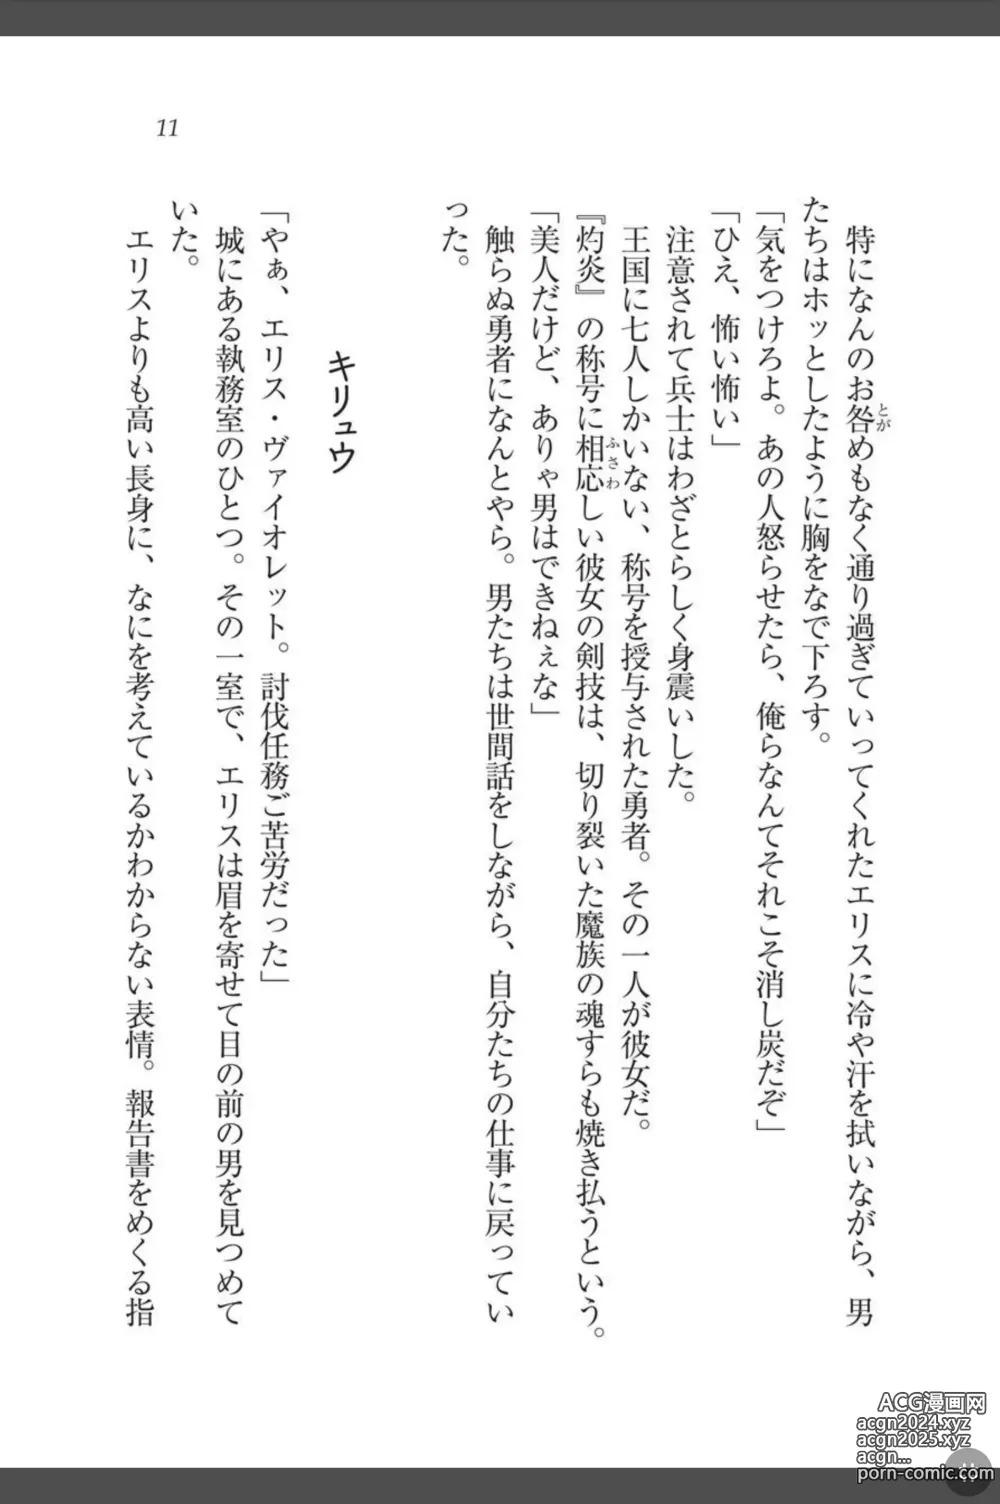 11
特になんのお咎めもなく通り過ぎていってくれたエリスに冷や汗を拭いながら、男
とが
たちはホッとしたように胸をなで下ろす。
「気をつけろよ。あの人怒らせたら、俺らなんてそれこそ消し炭だぞ」
「ひえ、怖い怖い」
注意されて兵士はわざとらしく身震いした。
王国に七人しかいない、称号を授与された勇者。その一人が彼女だ。
『灼炎』の称号に相応しい彼女の剣技は、切り裂いた魔族の魂すらも焼き払うという。
ふさわ
「美人だけど、ありゃ男はできねぇな」
触らぬ勇者になんとやら。男たちは世間話をしながら、自分たちの仕事に戻ってい
った。
キリュウ
「やぁ、エリス・ヴァイオレット。討伐任務ご苦労だった」
城にある執務室のひとつ。その一室で、エリスは眉を寄せて目の前の男を見つめて
いた。
エリスよりも高い長身に、なにを考えているかわからない表情。報告書をめくる指
ACG漫画网
acgn2024.xyz
acgn2025.xyz
acgn...
porn-comic.com